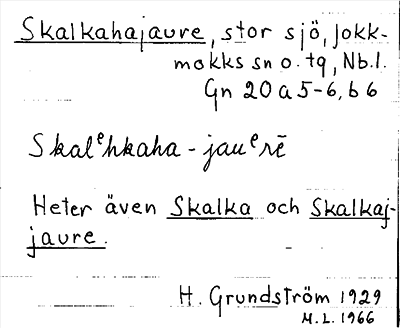 Skalkahajaure, stor sjö, Jokk-
mokks sn o. tg, Nb.l.
Gn 20 a 5-6, b 6
Skalᵉhkaha - jauᵉrē
Heter även Skalka och Skalkaj-
jaure.
H. Grundström 1929
M.L. 1966